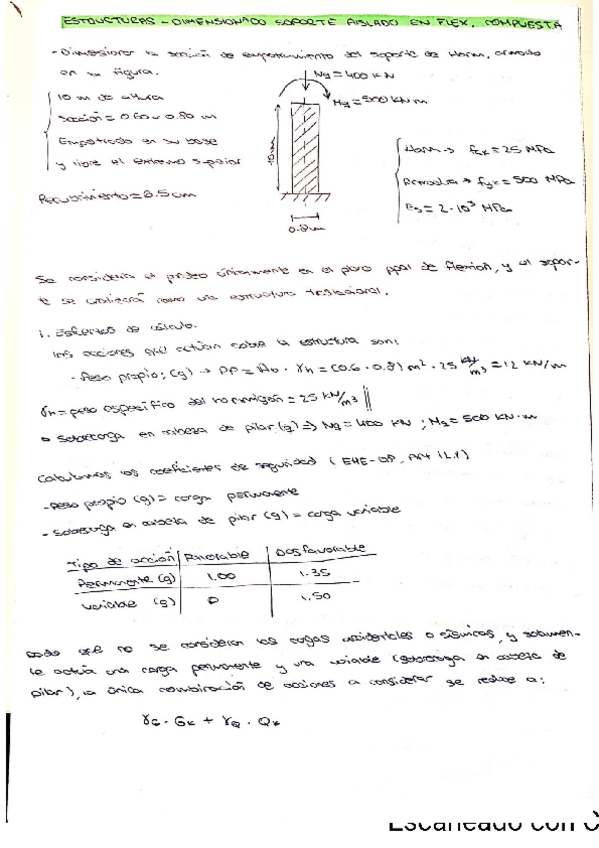 ESTRUCTURAS - DIMENSIONADO SOPORTE AISLADO EN FLEX. COMPUESTA
- Dimensionar la sección de empotramiento del soporte de Horm. armado
en su figura.
Ng = 400 KN
Mg = 500 KN m
10 m de altura
Sección = 0.60 x 0.80 m
Empotrado en su base
y libre el extremo superior
Recubrimiento = 3.5 cm
10m
0.8m
Horm → fck = 25 MPa
Armadura → fyk = 500 MPa
Es = 2·10³ MPa
Se considera el pandeo únicamente en el plano ppal de flexión, y el sopor-
te se analizará como una estructura traslacional.
1. Esfuerzos de cálculo.
las acciones que actúan sobre la estructura son:
- Peso propio: (g) → PP = Ab · γh = (0.6 · 0.8) m² · 25 KN/m³ = 12 KN/m
γh = peso específico del hormigón = 25 KN/m³
Sobrecarga en cabeza de pilar (g) ⇒ Ng = 400 KN ; Mg = 500 KN·m
Calculamos los coeficientes de seguridad (EHE-08, Art 12.1)
- Peso propio (g) = carga permanente
- Sobrecarga en cabeza de pilar (g) = carga variable
Tipo de acción | Favorable | Desfavorable
Permanente (g) | 1.00 | 1.35
Variable (g) | 0 | 1.50
Dado que no se consideran las cargas accidentales o sísmicas, y solamen-
te actúa una carga permanente y una variable (sobrecarga en cabeza de
pilar), la única combinación de acciones a considerar se reduce a:
γG · Gk + γQ · Qk
Escaneado con C